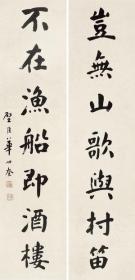 豈無山歌與村笛
不在漁船即酒樓
聖臣華世奎